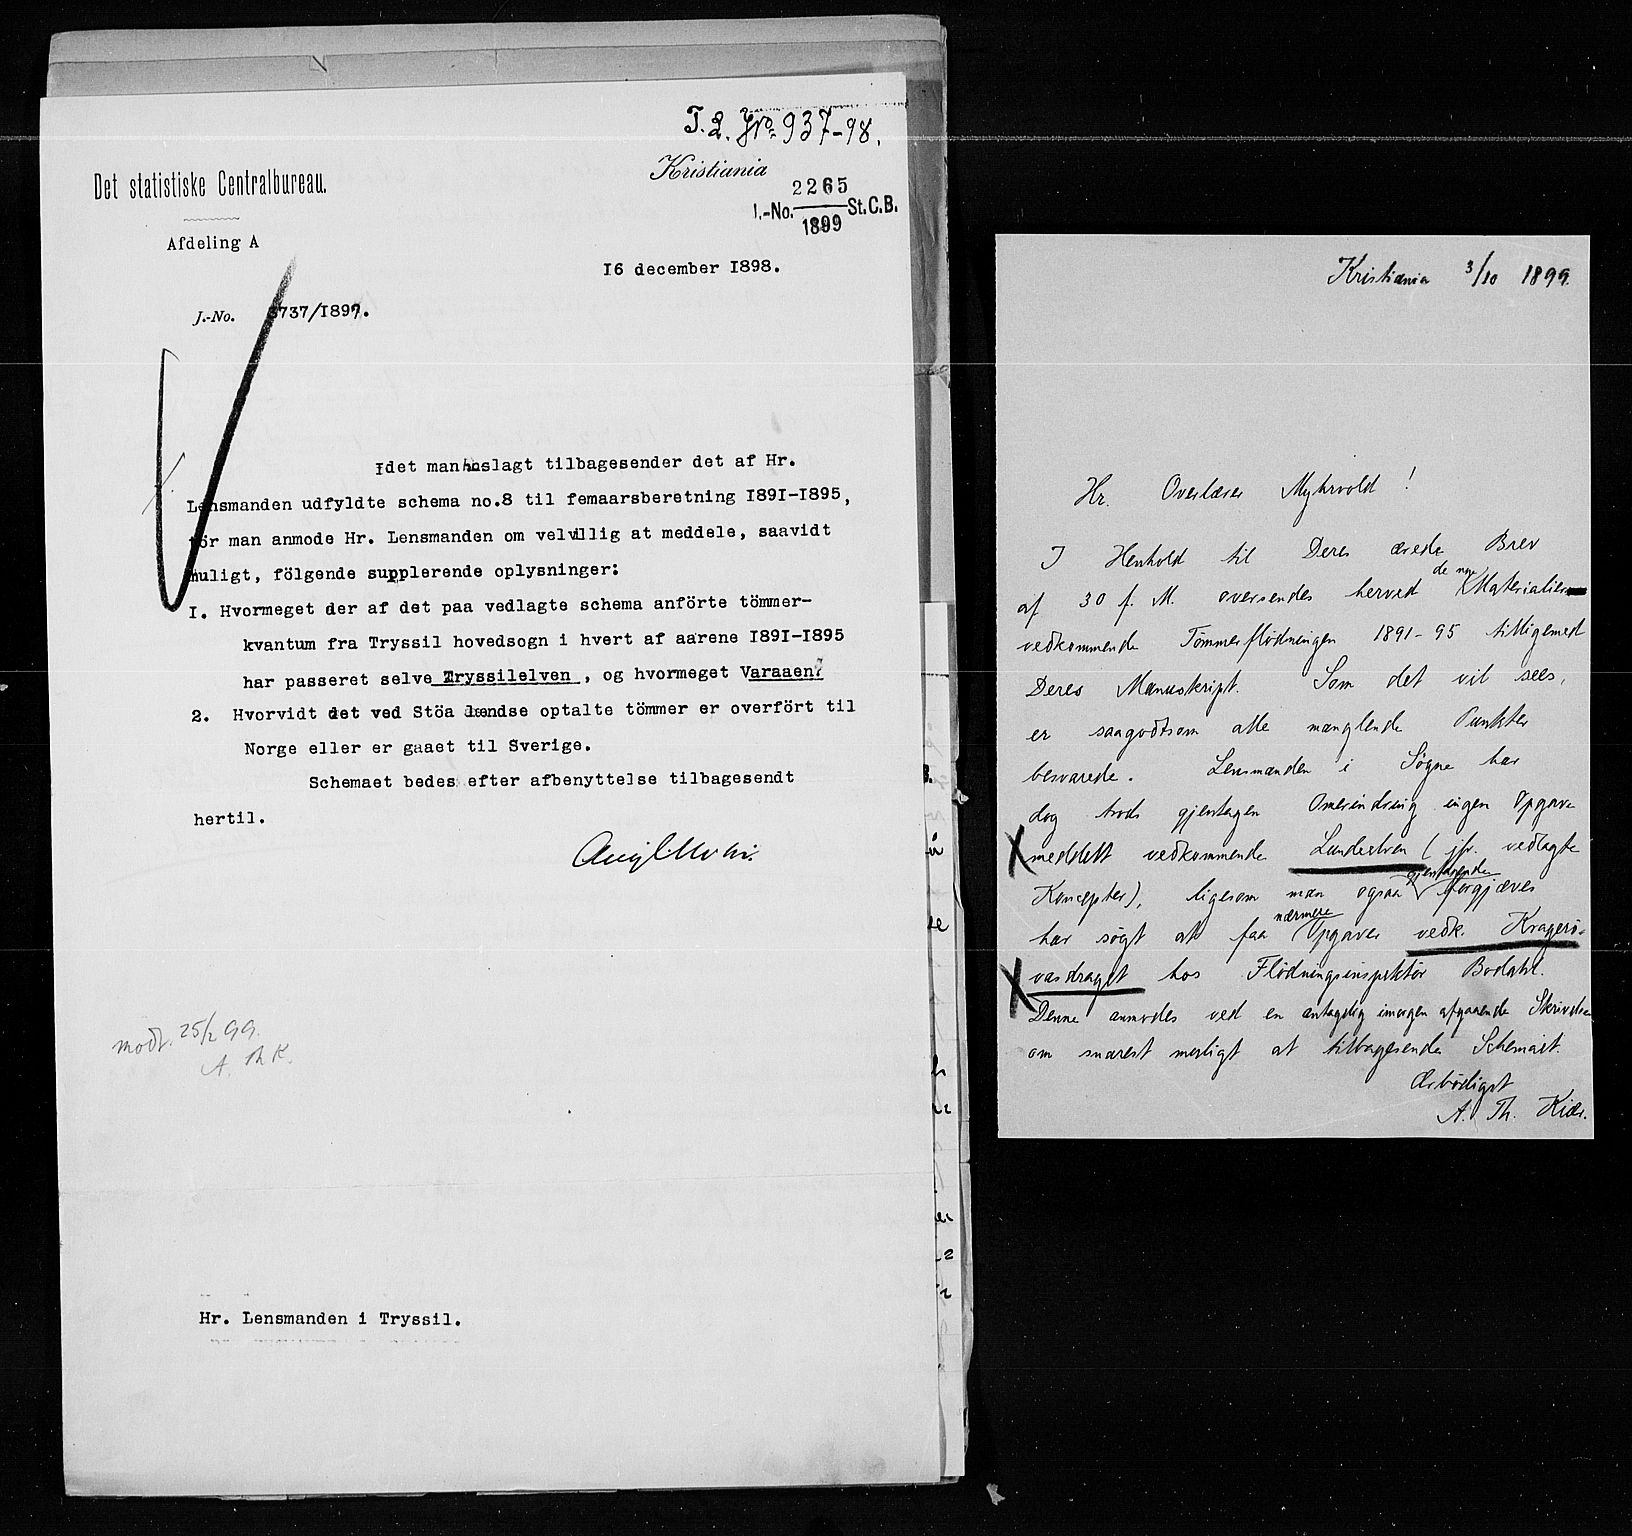 T. 2. No. 937-98.
Det statistiske Centralbureau.
Kristiania
2265
J.-No. St.C.B.
1899
Afdeling A
16 december 1898.
J.-No. 3737/1897.
Idet man hoslagt tilbagesender det af Hr.
Lensmanden udfyldte schema no.8 til femaarsberetning 1891-1895,
tör man anmode Hr. Lensmanden om velvillig at meddele, saavidt
muligt, fölgende supplerende oplysninger:
1. Hvormeget der af det paa vedlagte schema anförte tömmer-
kvantum fra Tryssil hovedsogn i hvert af aarene 1891-1895
har passeret selve Tryssilelven, og hvormeget Varaaen?
2. Hvorvidt det ved Stöa lændse optalte tömmer er overfört til
Norge eller er gaaet til Sverige.
Schemaet bedes efter afbenyttelse tilbagesendt
hertil.
modt. 25/2 99.
A. Th K.
Hr. Lensmanden i Tryssil.
Kristiania 3/10 1899.
Hr. Overlærer Myhrvold!
I Henhold til Deres ærede Brev
af 30 f. M. oversendes herved de nye Materialier
vedkommende Tømmerflødningen 1891-95 tilligemed
Deres Manuskript. Som det vil sees,
er saagodtsom alle manglende Punkter
besvarede. Lensmanden i Søgne har
dog trods gjentagen Omerindring ingen Opgave
X meddelt vedkommende Lundeelven (jfr. vedlagte
Koncepter), ligesom man ogsaa gjentagende forgjæves
har søgt at faa nærmere Opgaver vedk. Kragerø-
X vasdraget hos Flødningsinspektør Bødtker.
Denne anmodes ved en antagelig imorgen afgaaende Skrivelse
om snarest muligt at tilbagesende Schemaet.
Ærbødigst
A. Th. Kiær.